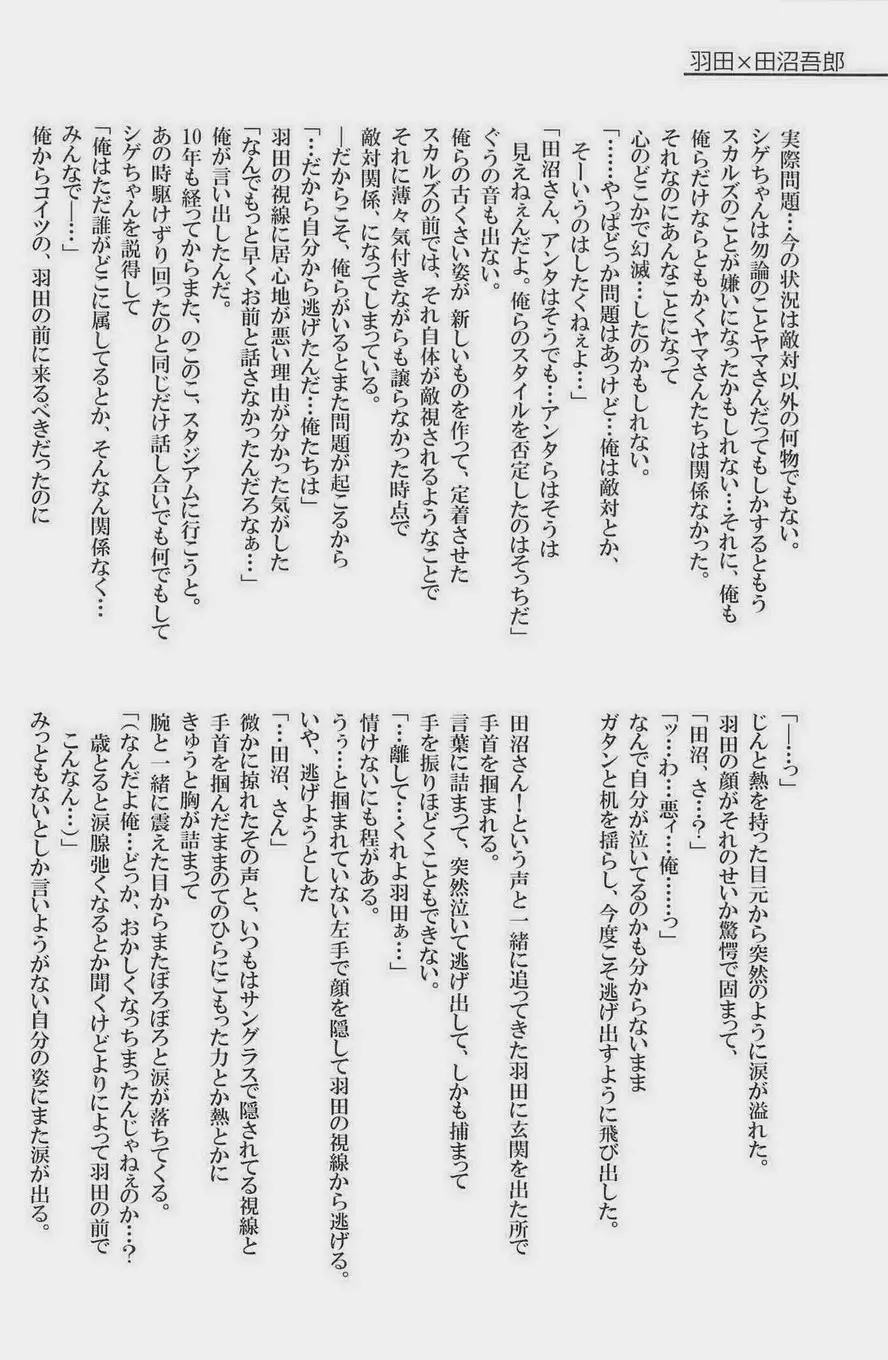 羽田×田沼吾郎
実際問題…今の状況は敵対以外の何物でもない。
シゲちゃんは勿論のことヤマさんだってもしかするともう
スカルズのことが嫌いになったかもしれない…それに、俺も
俺らだけならともかくヤマさんたちは関係なかった。
それなのにあんなことになって
心のどこかで幻滅…したのかもしれない。
「……やっぱどっか問題はあっけど…俺は敵対とか、
そーいうのはしたくねぇよ…」
「田沼さん、アンタはそうでも…アンタらはそうは
見えねぇんだよ。俺らのスタイルを否定したのはそっちだ」
ぐうの音も出ない。
俺らの古くさい姿が 新しいものを作って、定着させた
スカルズの前では、それ自体が敵視されるようなことで
それに薄々気付きながらも譲らなかった時点で
敵対関係、になってしまっている。
―だからこそ、俺らがいるとまた問題が起こるから
「…だから自分から逃げたんだ…俺たちは」
羽田の視線に居心地が悪い理由が分かった気がした
「なんでもっと早くお前と話さなかったんだろなぁ…」
俺が言い出したんだ。
10年も経ってからまた、のこのこ、スタジアムに行こうと。
あの時駆けずり回ったのと同じだけ話し合いでも何でもして
シゲちゃんを説得して
「俺はただ誰がどこに属してるとか、そんなん関係なく…
みんなで―…」
俺からコイツの、羽田の前に来るべきだったのに
「―…っ」
じんと熱を持った目元から突然のように涙が溢れた。
羽田の顔がそれのせいか驚愕で固まって、
「田沼、さ…?」
「ッ…わ…悪ィ…俺……っ」
なんで自分が泣いてるのかも分からないまま
ガタンと机を揺らし、今度こそ逃げ出すように飛び出した。
田沼さん！という声と一緒に追ってきた羽田に玄関を出た所で
手首を掴まれる。
言葉に詰まって、突然泣いて逃げ出して、しかも捕まって
手を振りほどくこともできない。
「…離して…くれよ羽田ぁ…」
情けないにも程がある。
うぅ…と掴まれていない左手で顔を隠して羽田の視線から逃げる。
いや、逃げようとした
「…田沼、さん」
微かに掠れたその声と、いつもはサングラスで隠されてる視線と
手首を掴んだままのてのひらにこもった力とか熱とかに
きゅうと胸が詰まって
腕と一緒に震えた目からまたぼろぼろと涙が落ちてくる。
「(なんだよ俺…どっか、おかしくなっちまったんじゃねぇのか…?
歳とると涙腺弛くなるとか聞くけどよりによって羽田の前で
こんなん…)」
みっともないとしか言いようがない自分の姿にまた涙が出る。